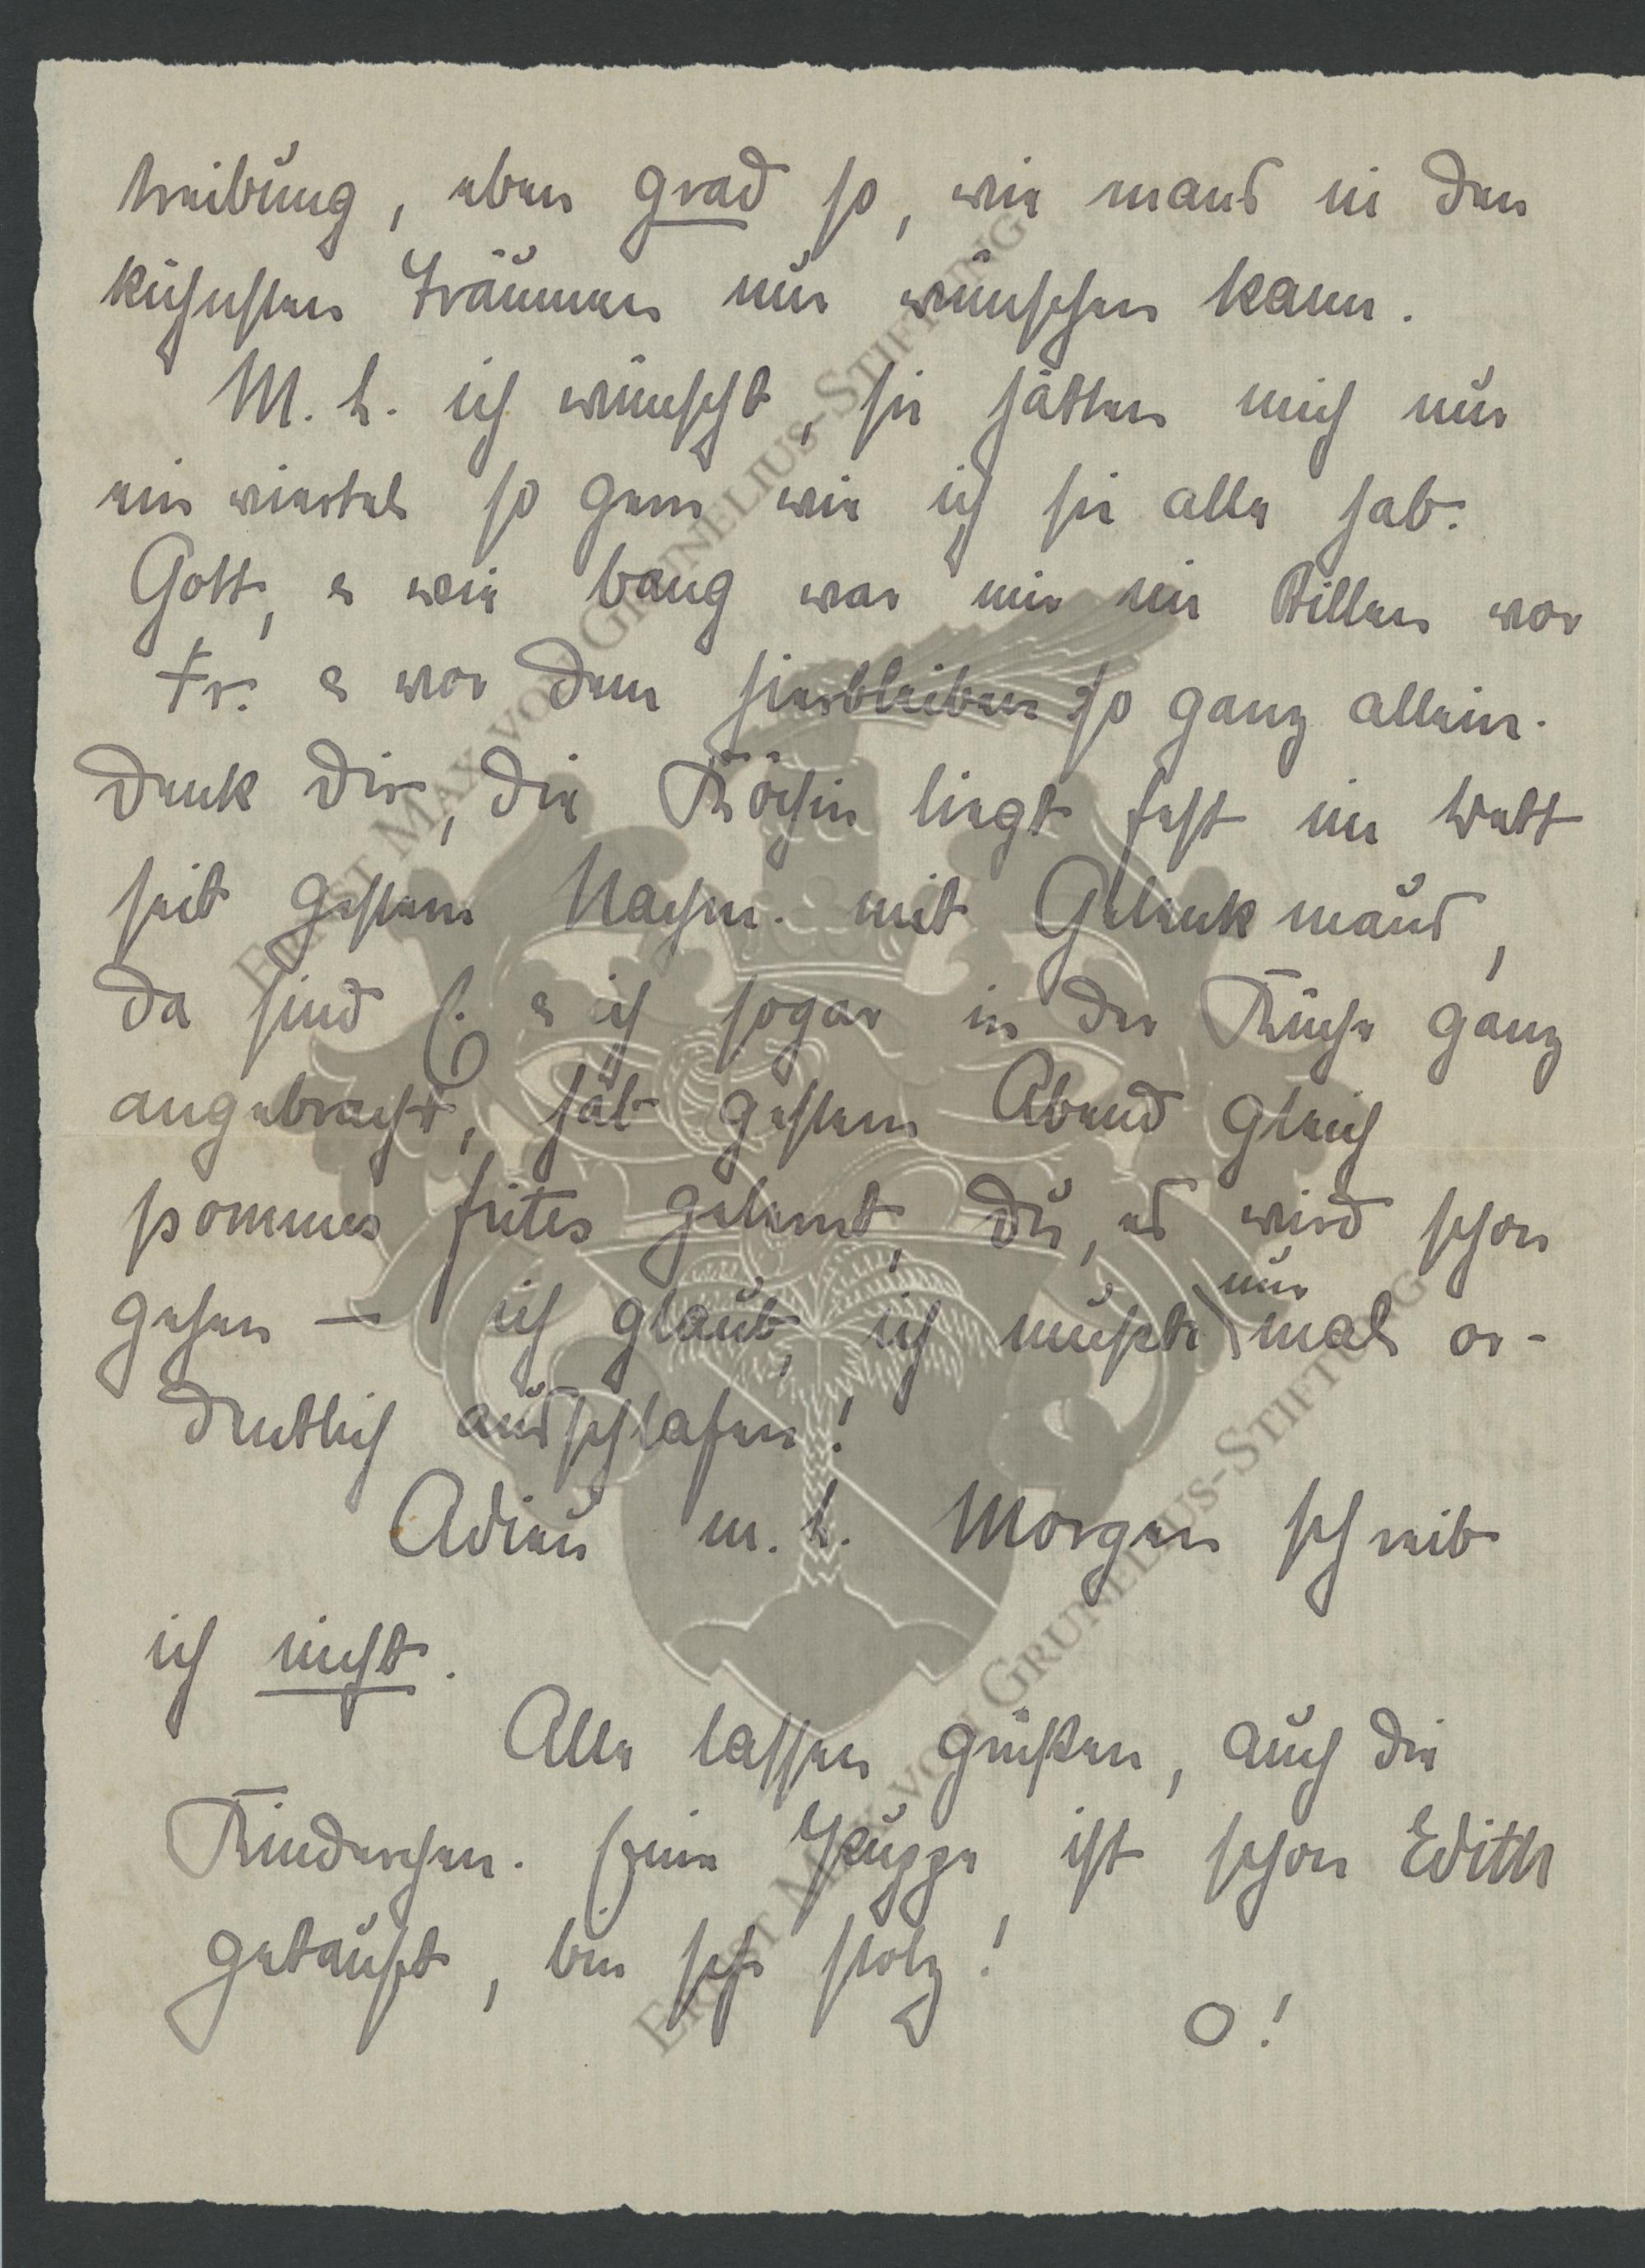 treibung, eben grad so, wie mans in den
kühnsten Träumen nur wünschen kann.
M. L. ich wünscht, sie hätten mich nur
ein viertel so gern wie ich sie alle hab.
Gott, & wie bang war mir im Stillen vor
Fr. & vor dem hierbleiben so ganz allein.
Denk Dir, die Köchin liegt fest im Bett
seit gestern Nachm. mit Gelenkmaus,
da sind C. & ich sogar in der Küche ganz
angebracht, hab gestern Abend gleich
pommes frites gelernt, Du, es wird schon
gehen – ich glaub, ich müßte nur mal or-
dentlich ausschlafen!
Adieu m. L. Morgen schreib
ich nicht.
Alle lassen grüßen, auch die
Kinderchen. Eine Puppe ist schon Edith
getauft, bin sehr stolz!
O!
ERNST MAX VON GRUNELIUS-STIFTUNG
ERNST MAX VON GRUNELIUS-STIFTUNG